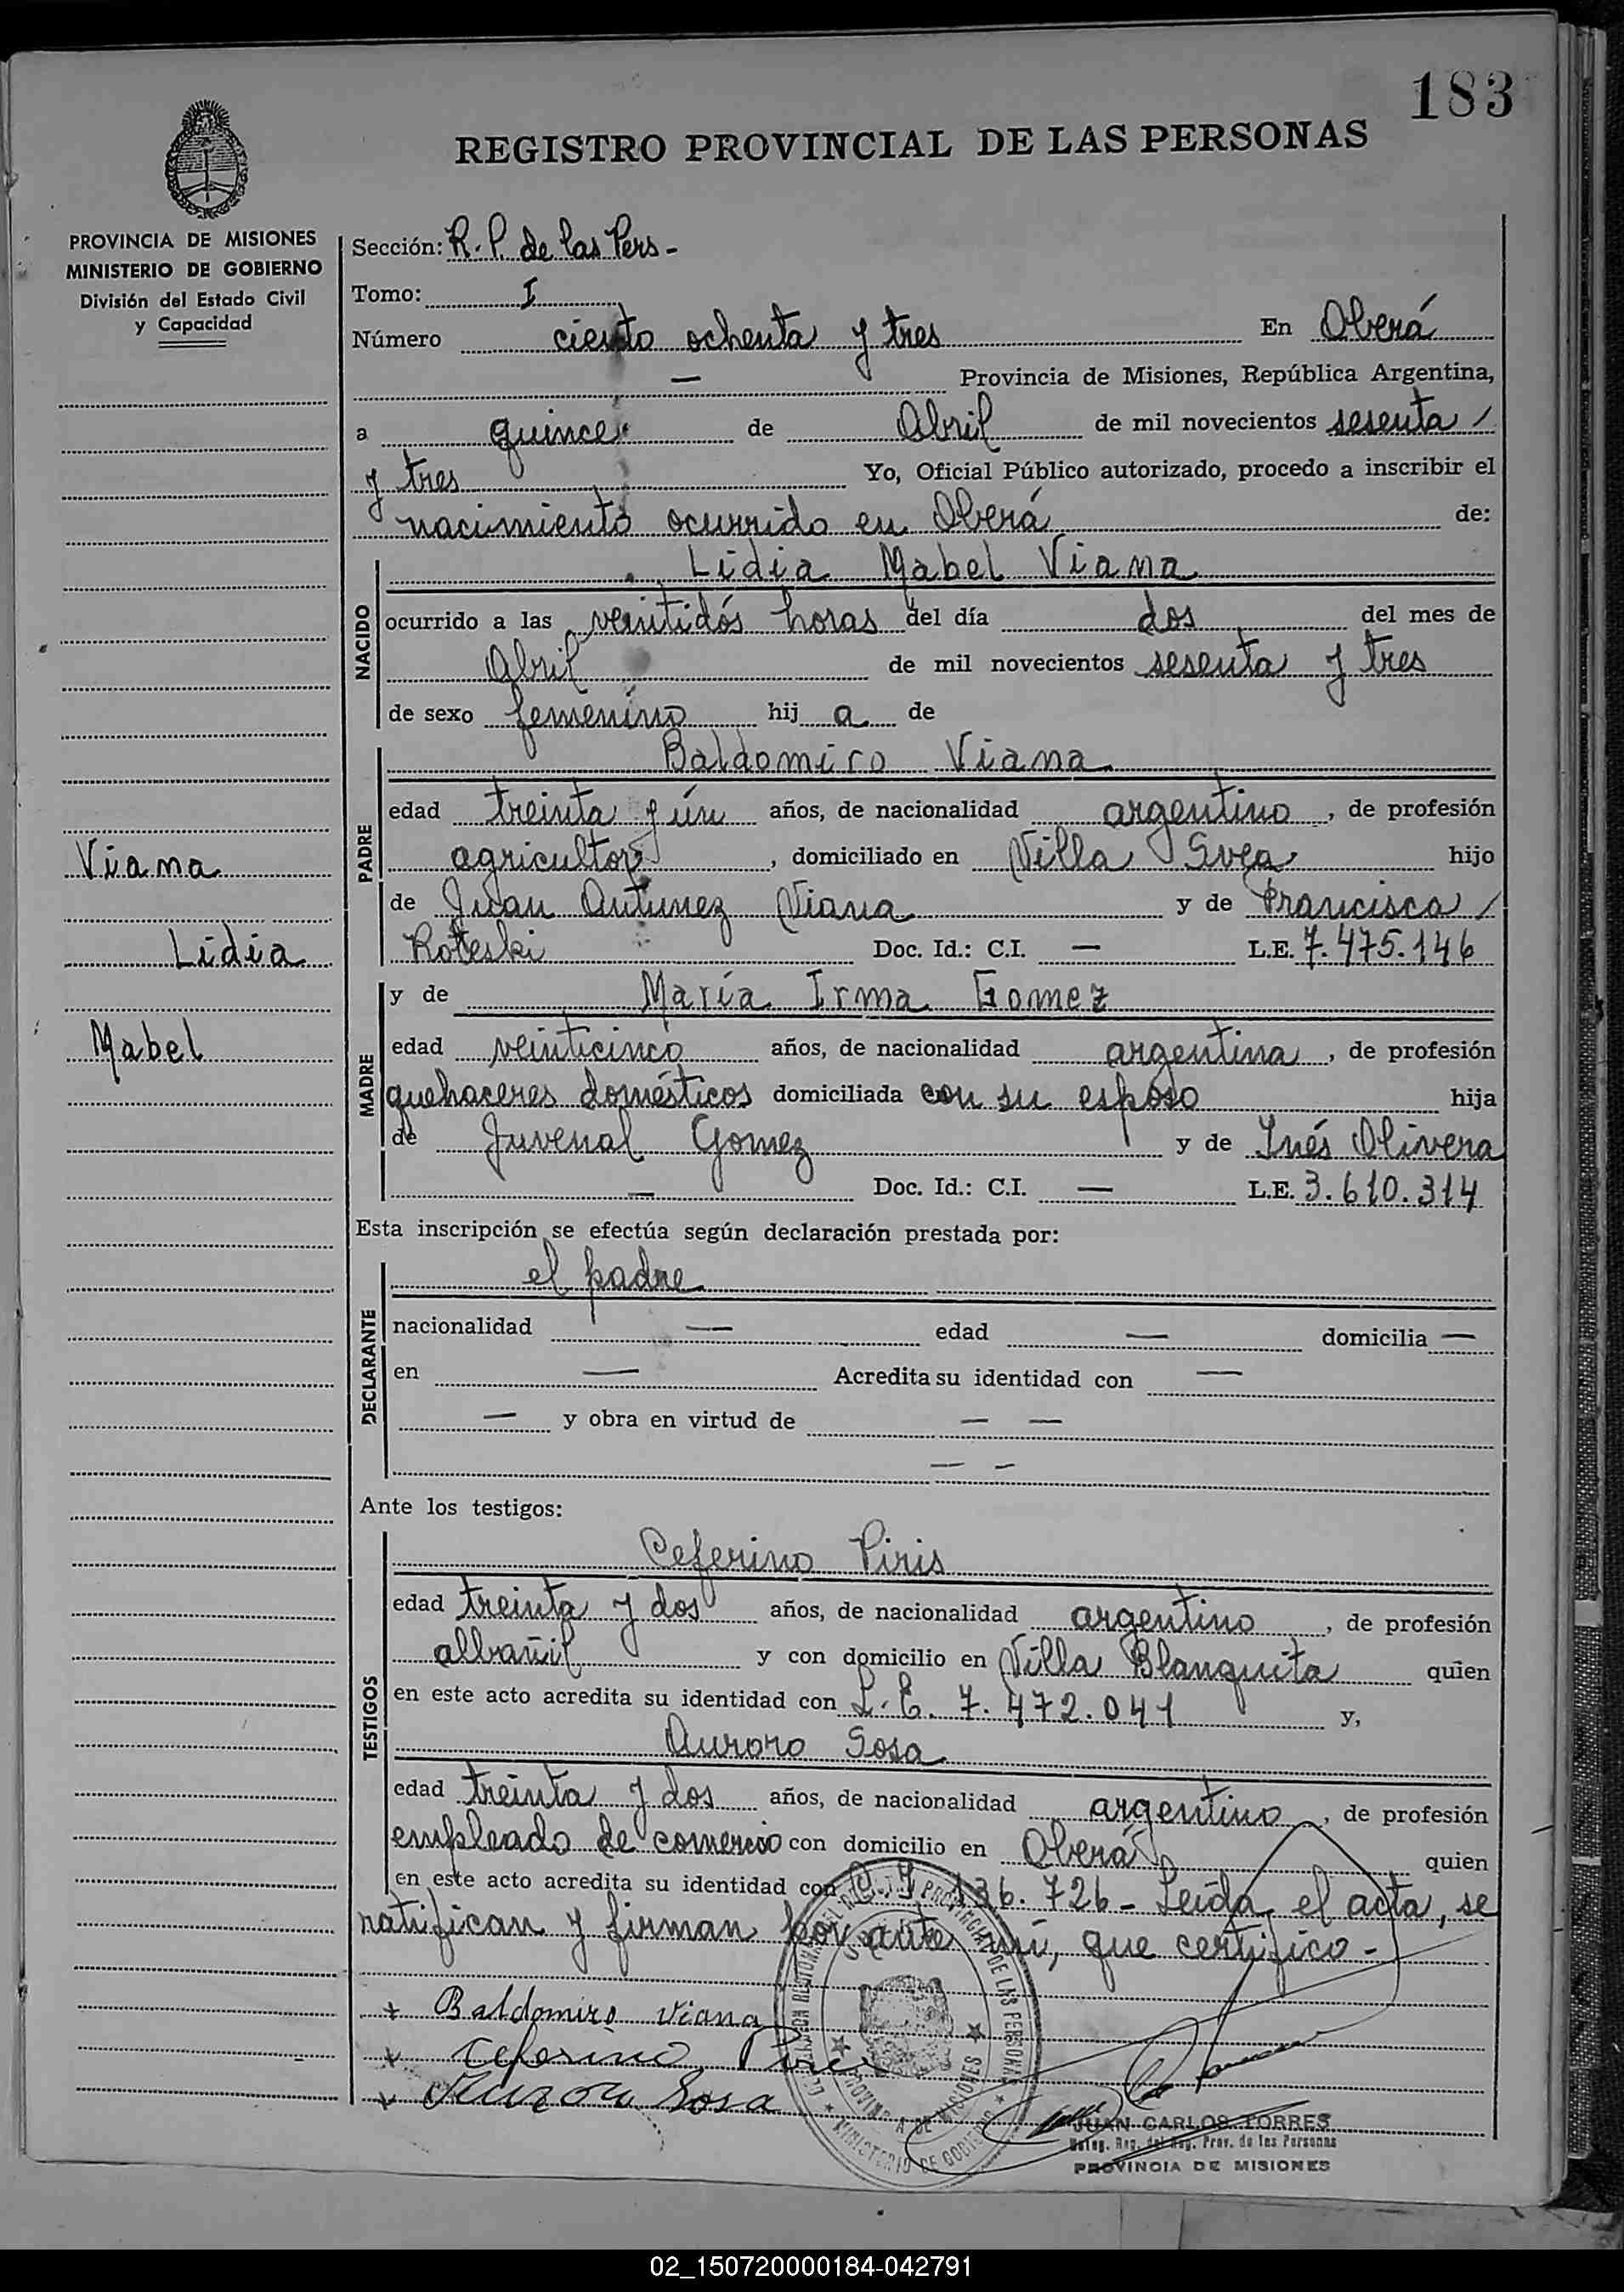 183
REGISTRO PROVINCIAL DE LAS PERSONAS
PROVINCIA DE MISIONES
MINISTERIO DE GOBIERNO
División del Estado Civil
y Capacidad
Sección: R. P. de las Pers -
Tomo: I
Número ciento ochenta y tres En Oberá
— Provincia de Misiones, República Argentina,
a quince de Abril de mil novecientos sesenta /
y tres Yo, Oficial Público autorizado, procedo a inscribir el
nacimiento ocurrido en Oberá de:
NACIDO
Lidia Mabel Viana
ocurrido a las veintidós horas del día dos del mes de
Abril de mil novecientos sesenta y tres
de sexo femenino hij a de
PADRE
Baldomiro Viana
edad treinta y ún años, de nacionalidad argentino, de profesión
agricultor, domiciliado en Villa Svea hijo
de Juan Antunez Viana y de Francisca /
Koteski Doc. Id.: C.I. — L.E. 7.475.146
Viana
Lidia
Mabel
MADRE
y de María Irma Gomez
edad veinticinco años, de nacionalidad argentina, de profesión
quehaceres domésticos domiciliada con su esposo hija
de Juvenal Gomez y de Inés Olivera
— Doc. Id.: C.I. — L.E. 3.610.314
Esta inscripción se efectúa según declaración prestada por:
DECLARANTE
el padre
nacionalidad — edad — domicilia —
en — Acredita su identidad con —
— y obra en virtud de — —
— -
Ante los testigos:
TESTIGOS
Ceferino Piris
edad treinta y dos años, de nacionalidad argentino, de profesión
albañil y con domicilio en Villa Blanquita quien
en este acto acredita su identidad con L. E. 7.472.041 y,
Auroro Sosa
edad treinta y dos años, de nacionalidad argentino, de profesión
empleado de comercio con domicilio en Oberá quien
en este acto acredita su identidad con C. I 136.726 - Leída el acta, se
ratifican y firman por ante mí, que certifico -
+ Baldomiro Viana
+ Ceferino Piris
+ Auroro Sosa
PROVINCIAL DE LAS PERSONAS
PROVINCIA DE MISIONES
MINISTERIO DE GOBIERNO
JUAN CARLOS TORRES
Deleg. Reg. del Reg. Prov. de las Personas
PROVINCIA DE MISIONES
02_150720000184-042791